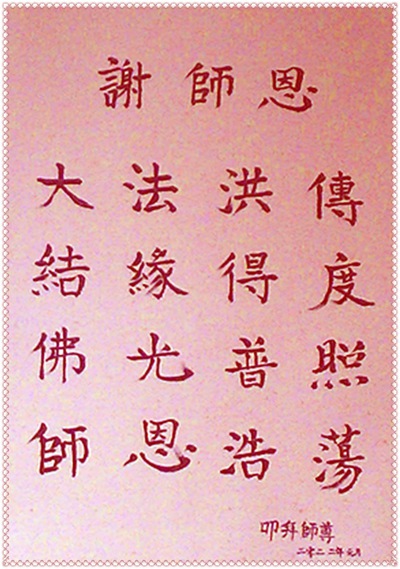 謝師恩
大法洪傳
結緣得度
佛光普照
師恩浩蕩
叩拜師尊
二零二二年元月